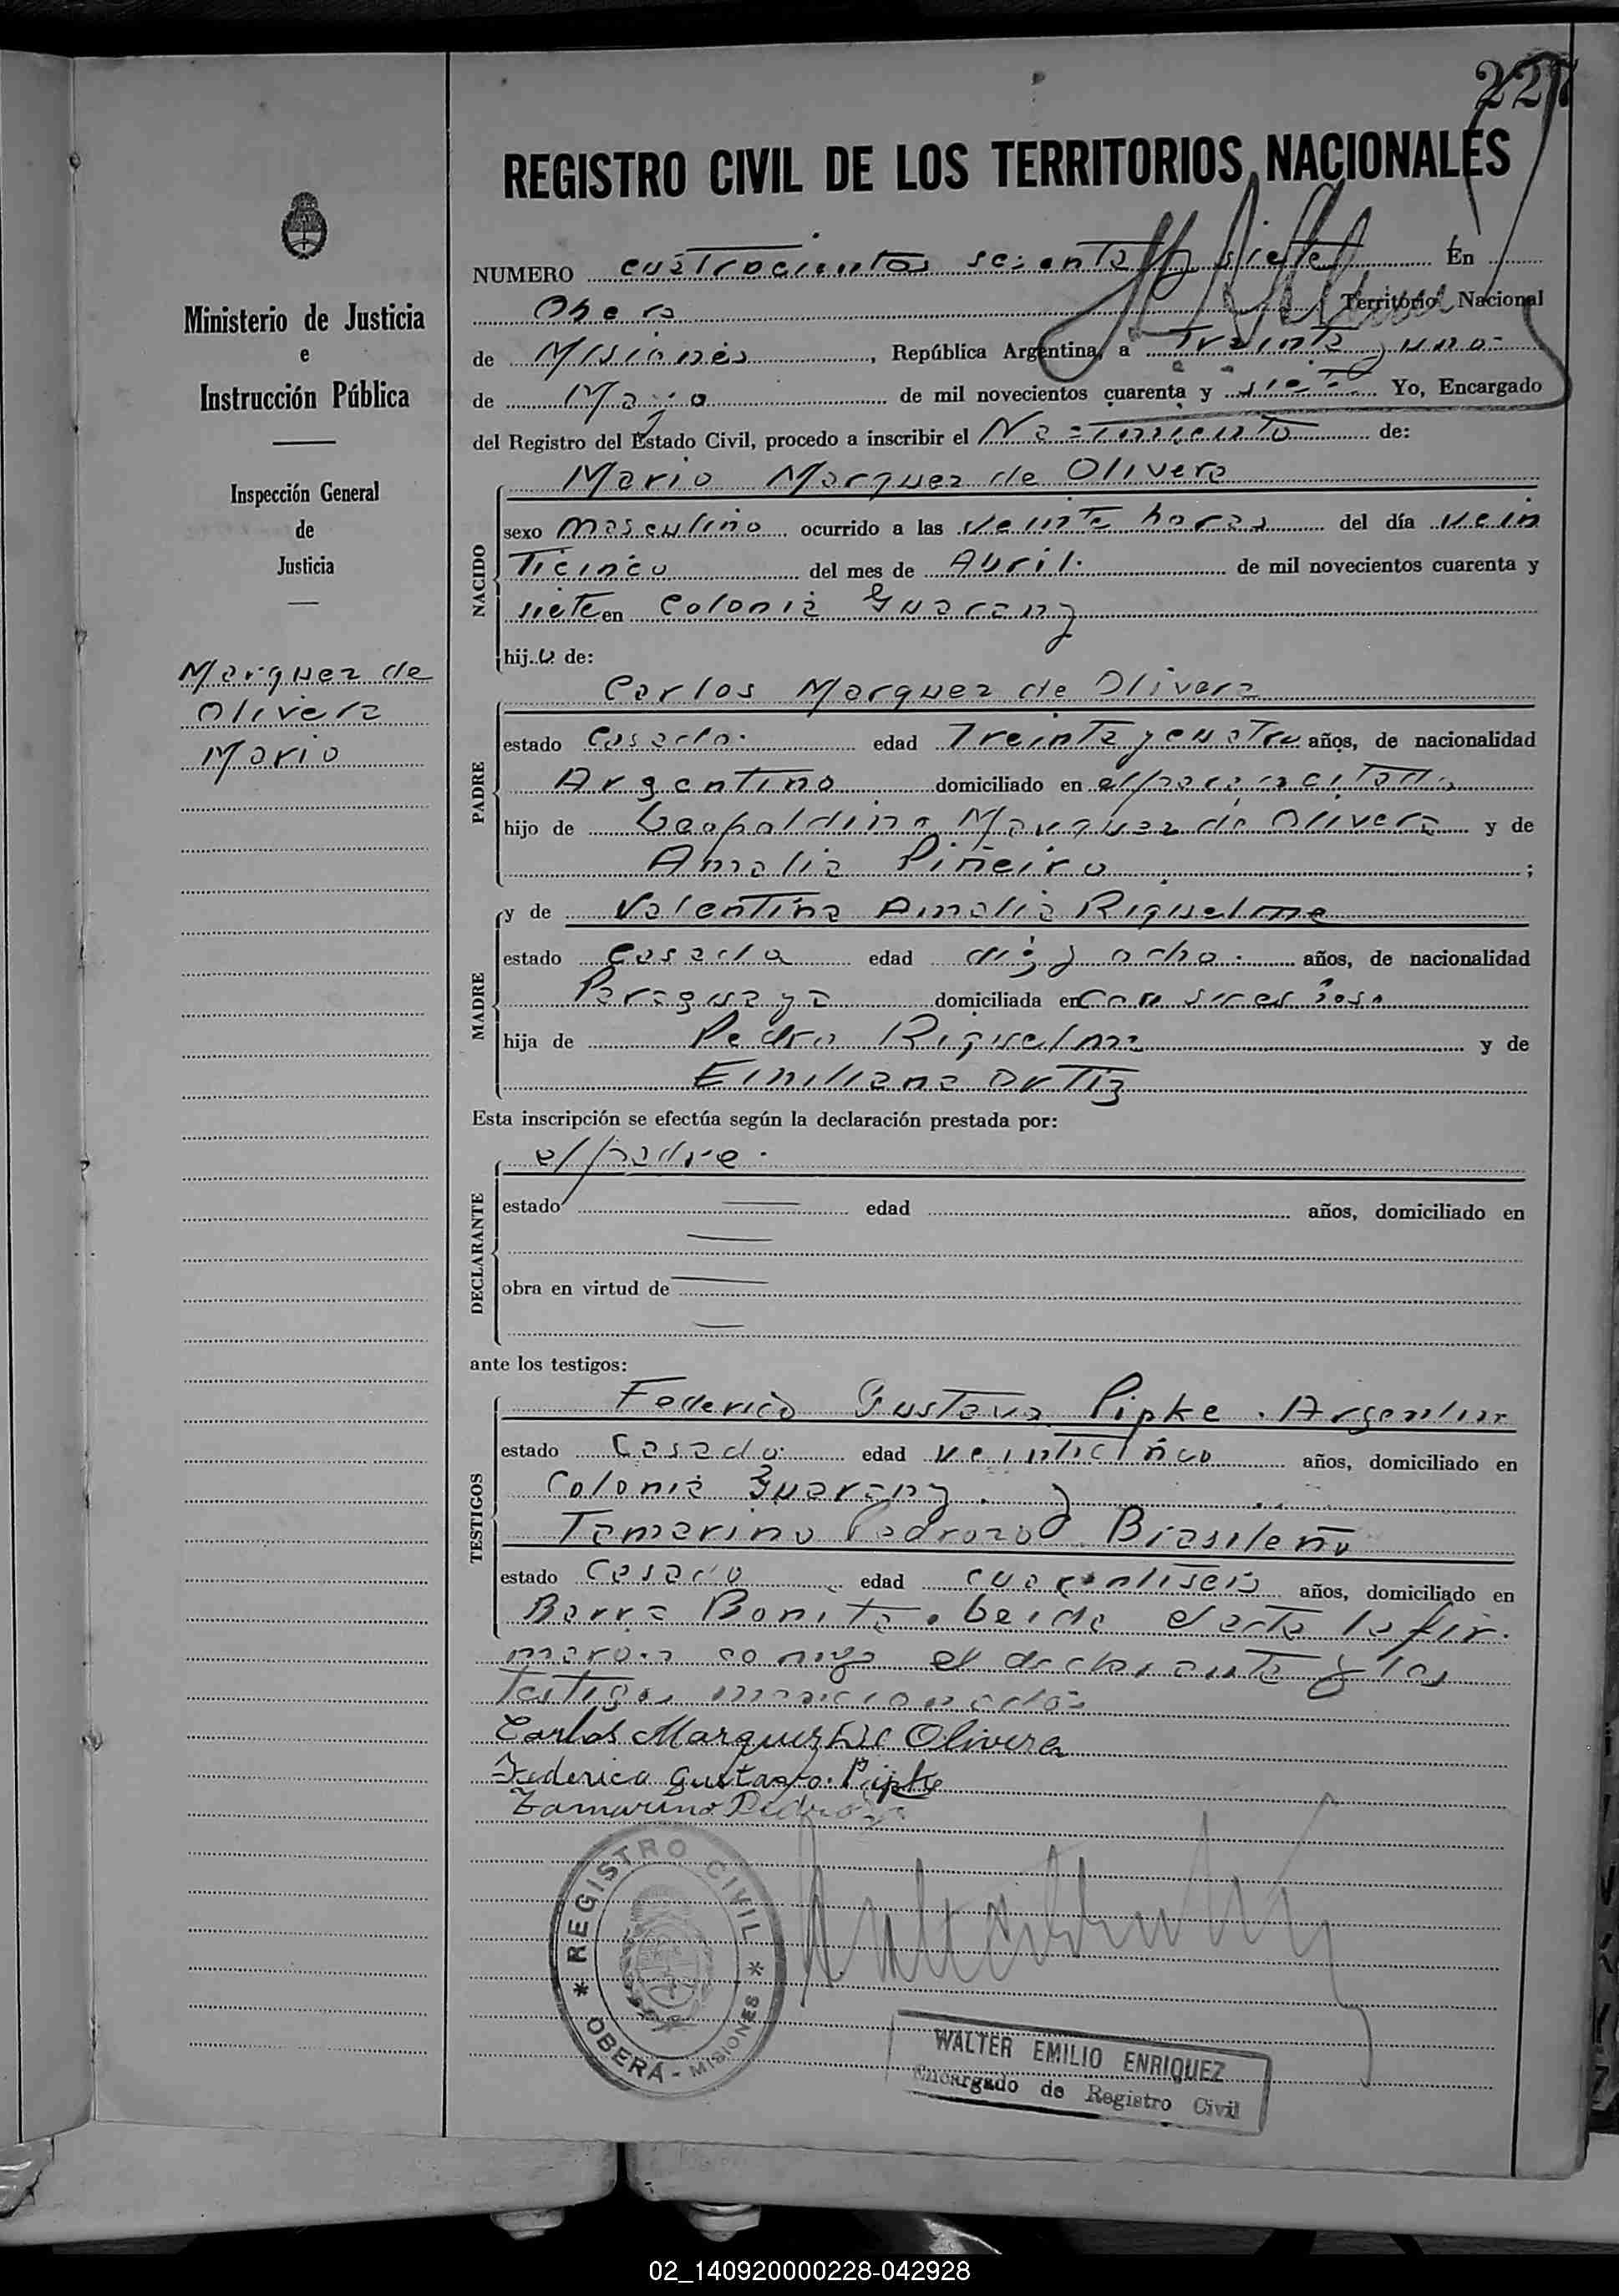 227
REGISTRO CIVIL DE LOS TERRITORIOS NACIONALES
NUMERO cuatrocientos y siete En
Obera Territorio Nacional
de Misiones, República Argentina, a treinta y uno
de Mayo de mil novecientos cuarenta y siete Yo, Encargado
del Registro del Estado Civil, procedo a inscribir el Nacimiento de:
Mario Marquez de Olivera
NACIDO
sexo masculino ocurrido a las veinte horas del día vein
ticinco del mes de Abril de mil novecientos cuarenta y
siete en Colonia Guarany
hijo de:
Carlos Marquez de Olivera
PADRE
estado Casado edad Treinta y cuatro años, de nacionalidad
Argentino domiciliado en el paraje citado
hijo de Leopoldino Marquez de Olivera y de
Amalia Piñeiro ;
y de Valentina Amalia Riquelme
MADRE
estado Casada edad diez y ocho años, de nacionalidad
Paraguaya domiciliada en con su esposo
hija de Pedro Riquelme y de
Emiliana Ortiz
Esta inscripción se efectúa según la declaración prestada por:
el padre
DECLARANTE
estado edad años, domiciliado en
obra en virtud de
ante los testigos:
Federico Gustavo Pipke. Argentino
TESTIGOS
estado Casado edad veinticinco años, domiciliado en
Colonia Guarany. y
Tamarino Pedrozo Brasileño
estado Casado edad cuarentiseis años, domiciliado en
Barra Bonita. Leida el acta la fir.
maron conmigo el declarante y los
testigos mencionados
Carlos Marquez de Olivera
Federico Gustavo Pipke
Tamarino Pedrozo
REGISTRO CIVIL
* OBERÁ - MISIONES *
WALTER EMILIO ENRIQUEZ
Encargado de Registro Civil
Ministerio de Justicia
e
Instrucción Pública
Inspección General
de
Justicia
Marquez de
Olivera
Mario
02_140920000228-042928